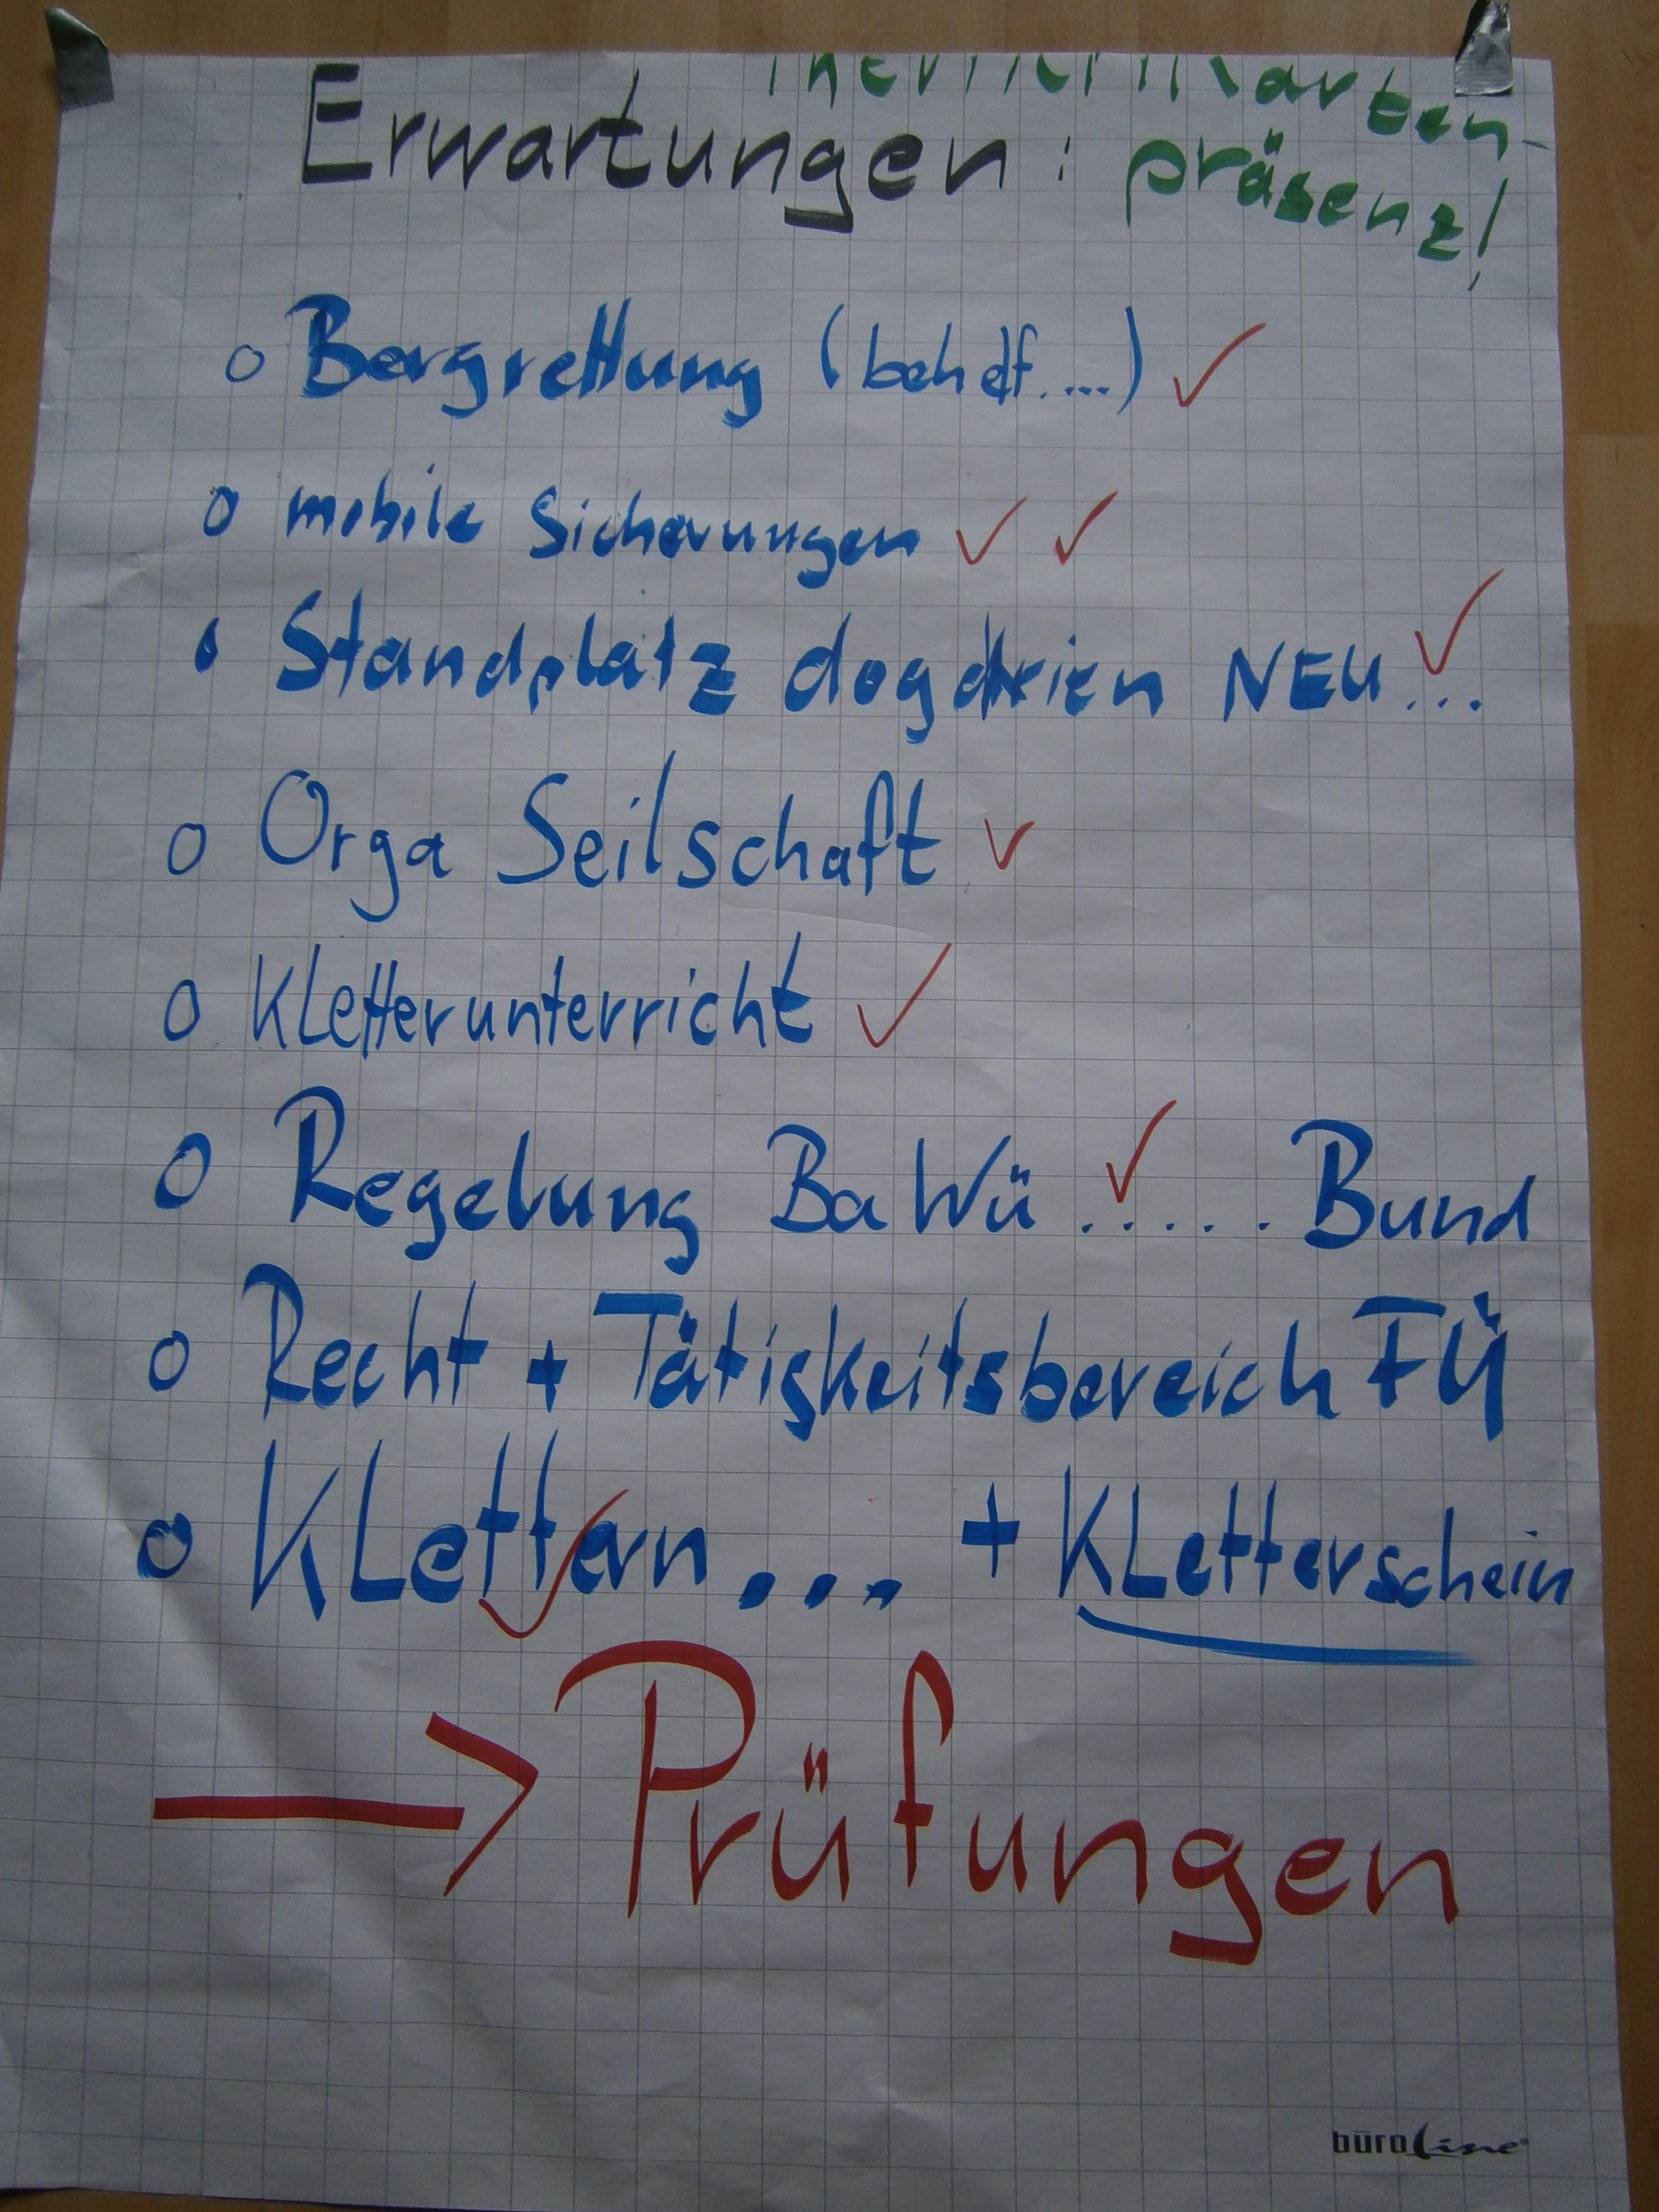 Erwartungen: präsenz!
o Bergrettung (behelf....) ✓
o mobile Sicherungen ✓ ✓
• Standplatz dogdrien NEU... ✓
o Orga Seilschaft ✓
o Kletterunterricht ✓
o Regelung BaWü ✓ ..... Bund
o Recht + Tätigkeitsbereich FÜ
o Klettern... ✓ + Kletterschein
→ Prüfungen
büroline